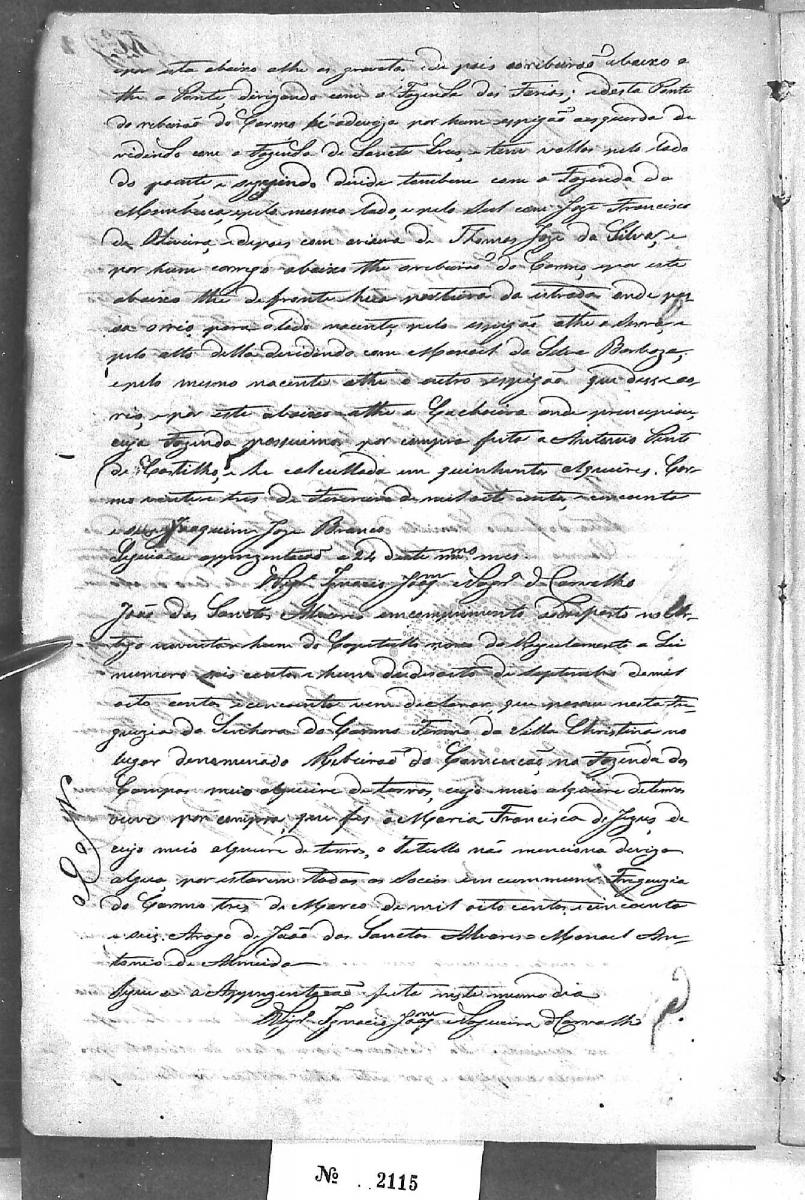 por esta abaixo athe as gravatas, e de pois o ribeirão abaixo a
the a Ponte devizando com a Fazenda das Farias; e desta Ponte
do ribeirão do Carmo se adeviza por hum espigão a esquerda de
vidindo com a fazenda de Sancta Cruz, e tem voltas pelo lado
do poente e seguindo devide tambem com a Fazenda da
Mombuca, e pelo mesmo lado, e pelo Sul com Joze Francisco
de Oliveira, e depois com a viuva de Thomas Joze da Silva, e
por hum corrego abaixo the o ribeirão do Carmo, e por este
abaixo the defronte hua porteira da estrada onde pas
sa o rio, para o lado nacente, pelo espigão athe a Serra, e
pelo alto della devidindo com Manoel da Silva Barboza,
e pelo mesmo nacente athe o outro espigão que desse ao
rio, e por este abaixo athe a Cachoeira onde principiou,
cuja fazenda possuimos por compra feita a Antonio Pinto
de Castilho, e he calcullada em quinhentos alqueires. Car-
mo vinte e tres de Fevereiro de mil oito centos, e cincoenta
e seis. Joaquim Joze Branco
Seguia e apprezentação a 24 deste mmo mes.
O Vigro Ignacio Joaqm Nogra de Carvalho
João dos Sanctos Alvares em cumprimento ao disposto no Ar-
tigo noventa e hum do Capitullo nono do Regulamento e Lei
numero seis centos e hum de dezoito de Septembro de mil
oito centos e cincoenta vem declarar que possue nesta Fre-
guezia da Senhora do Carmo Termo da Villa Christina no
lugar denominado Ribeirão da Conceição na Fazenda dos
Campos meio alqueire de terras, cujo meio alqueire de terras
ouve por compra, que fes a Maria Francisca de Jezus, de
cujo meio alqueire de terras, o titullo não menciona deviza
algua por estarem todas os Socios em cummum. Freguezia
do Carmo tres de Marco de mil oito centos, e cincoenta
e seis. Arogo de João dos Sanctos Alvares = Manoel An-
tonio de Almeida
Segue se a Apprezentação feita neste mesmo dia
O Vigro Ignacio Joaqm Nogueira d Carvalho
Nº 2115